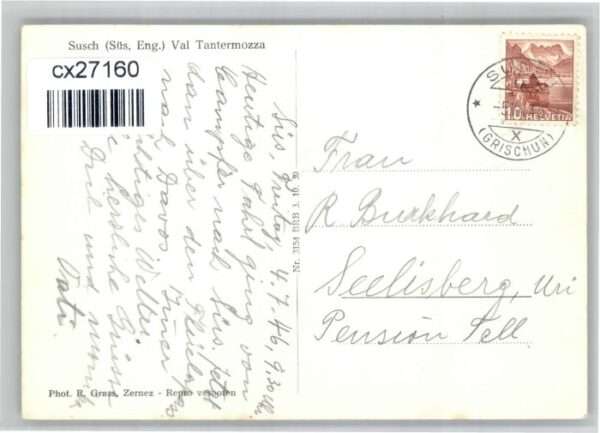 Susch (Süs, Eng.) Val Tantermozza
cx27160
Süs, Freitag, 4.7.46, 9.30 Uhr
Heutige Fahrt ging von
Campfer nach Süs. Jetzt
dann über den Flüelapass
nach Davos. Immer
Wetter.
herzliche Grüsse
Dich und
Vati.
Nr. 3154 BRB 3. 10. 39
Phot. R. Grass, Zernez - Repro verboten
10 HELVETIA
(GRISCHUN)
X
Frau
R Burkhard
Seelisberg, Uri
Pension Tell